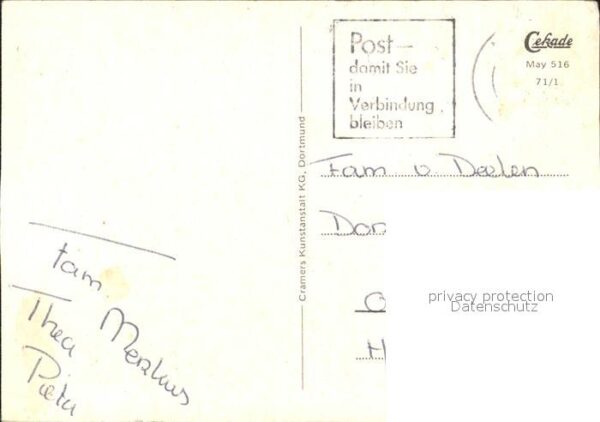 Post –
damit Sie
in
Verbindung
bleiben
Cekade
May 516
71/1
Cramers Kunstanstalt KG, Dortmund
Fam v Deelen
Dor
H
privacy protection
Datenschutz
Fam
Thea